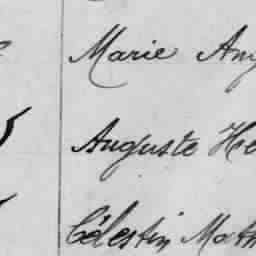 Marie Ang
Auguste He
Célestin Math